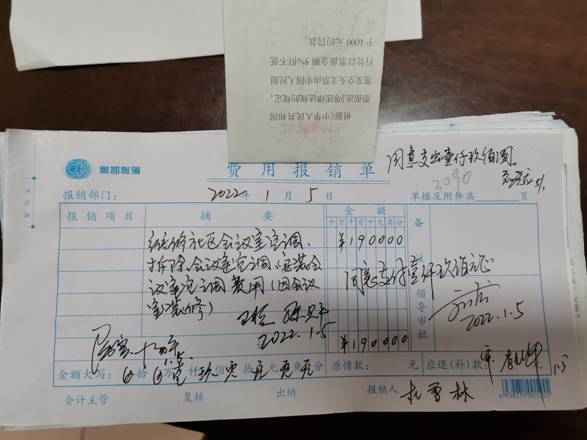 根据《中华人民共和国
票据法》等法律法规的规定,
签发空头支票由中国人民银
行处以票面金额5%但不低
于1000元的罚款
奥凯账簿
费用报销单
同意支出壹仟玖佰圆
报销部门:
2022年1月5日
单据及附件共 页
报销项目
摘要
金额
十万千百十元角分
备
维修社区会议室空调、
¥190000
拆除会议室空调、安装会
议室空调费用(因会议
室装修)
同意支付壹仟玖佰
领导审批
2022.1.5
2022.1.5
¥190000
金额大写: 拾 万 壹仟 玖佰 零拾 零元 零角 零分
原借款: 元
应退(补)款:
会计主管
复核
出纳
报销人